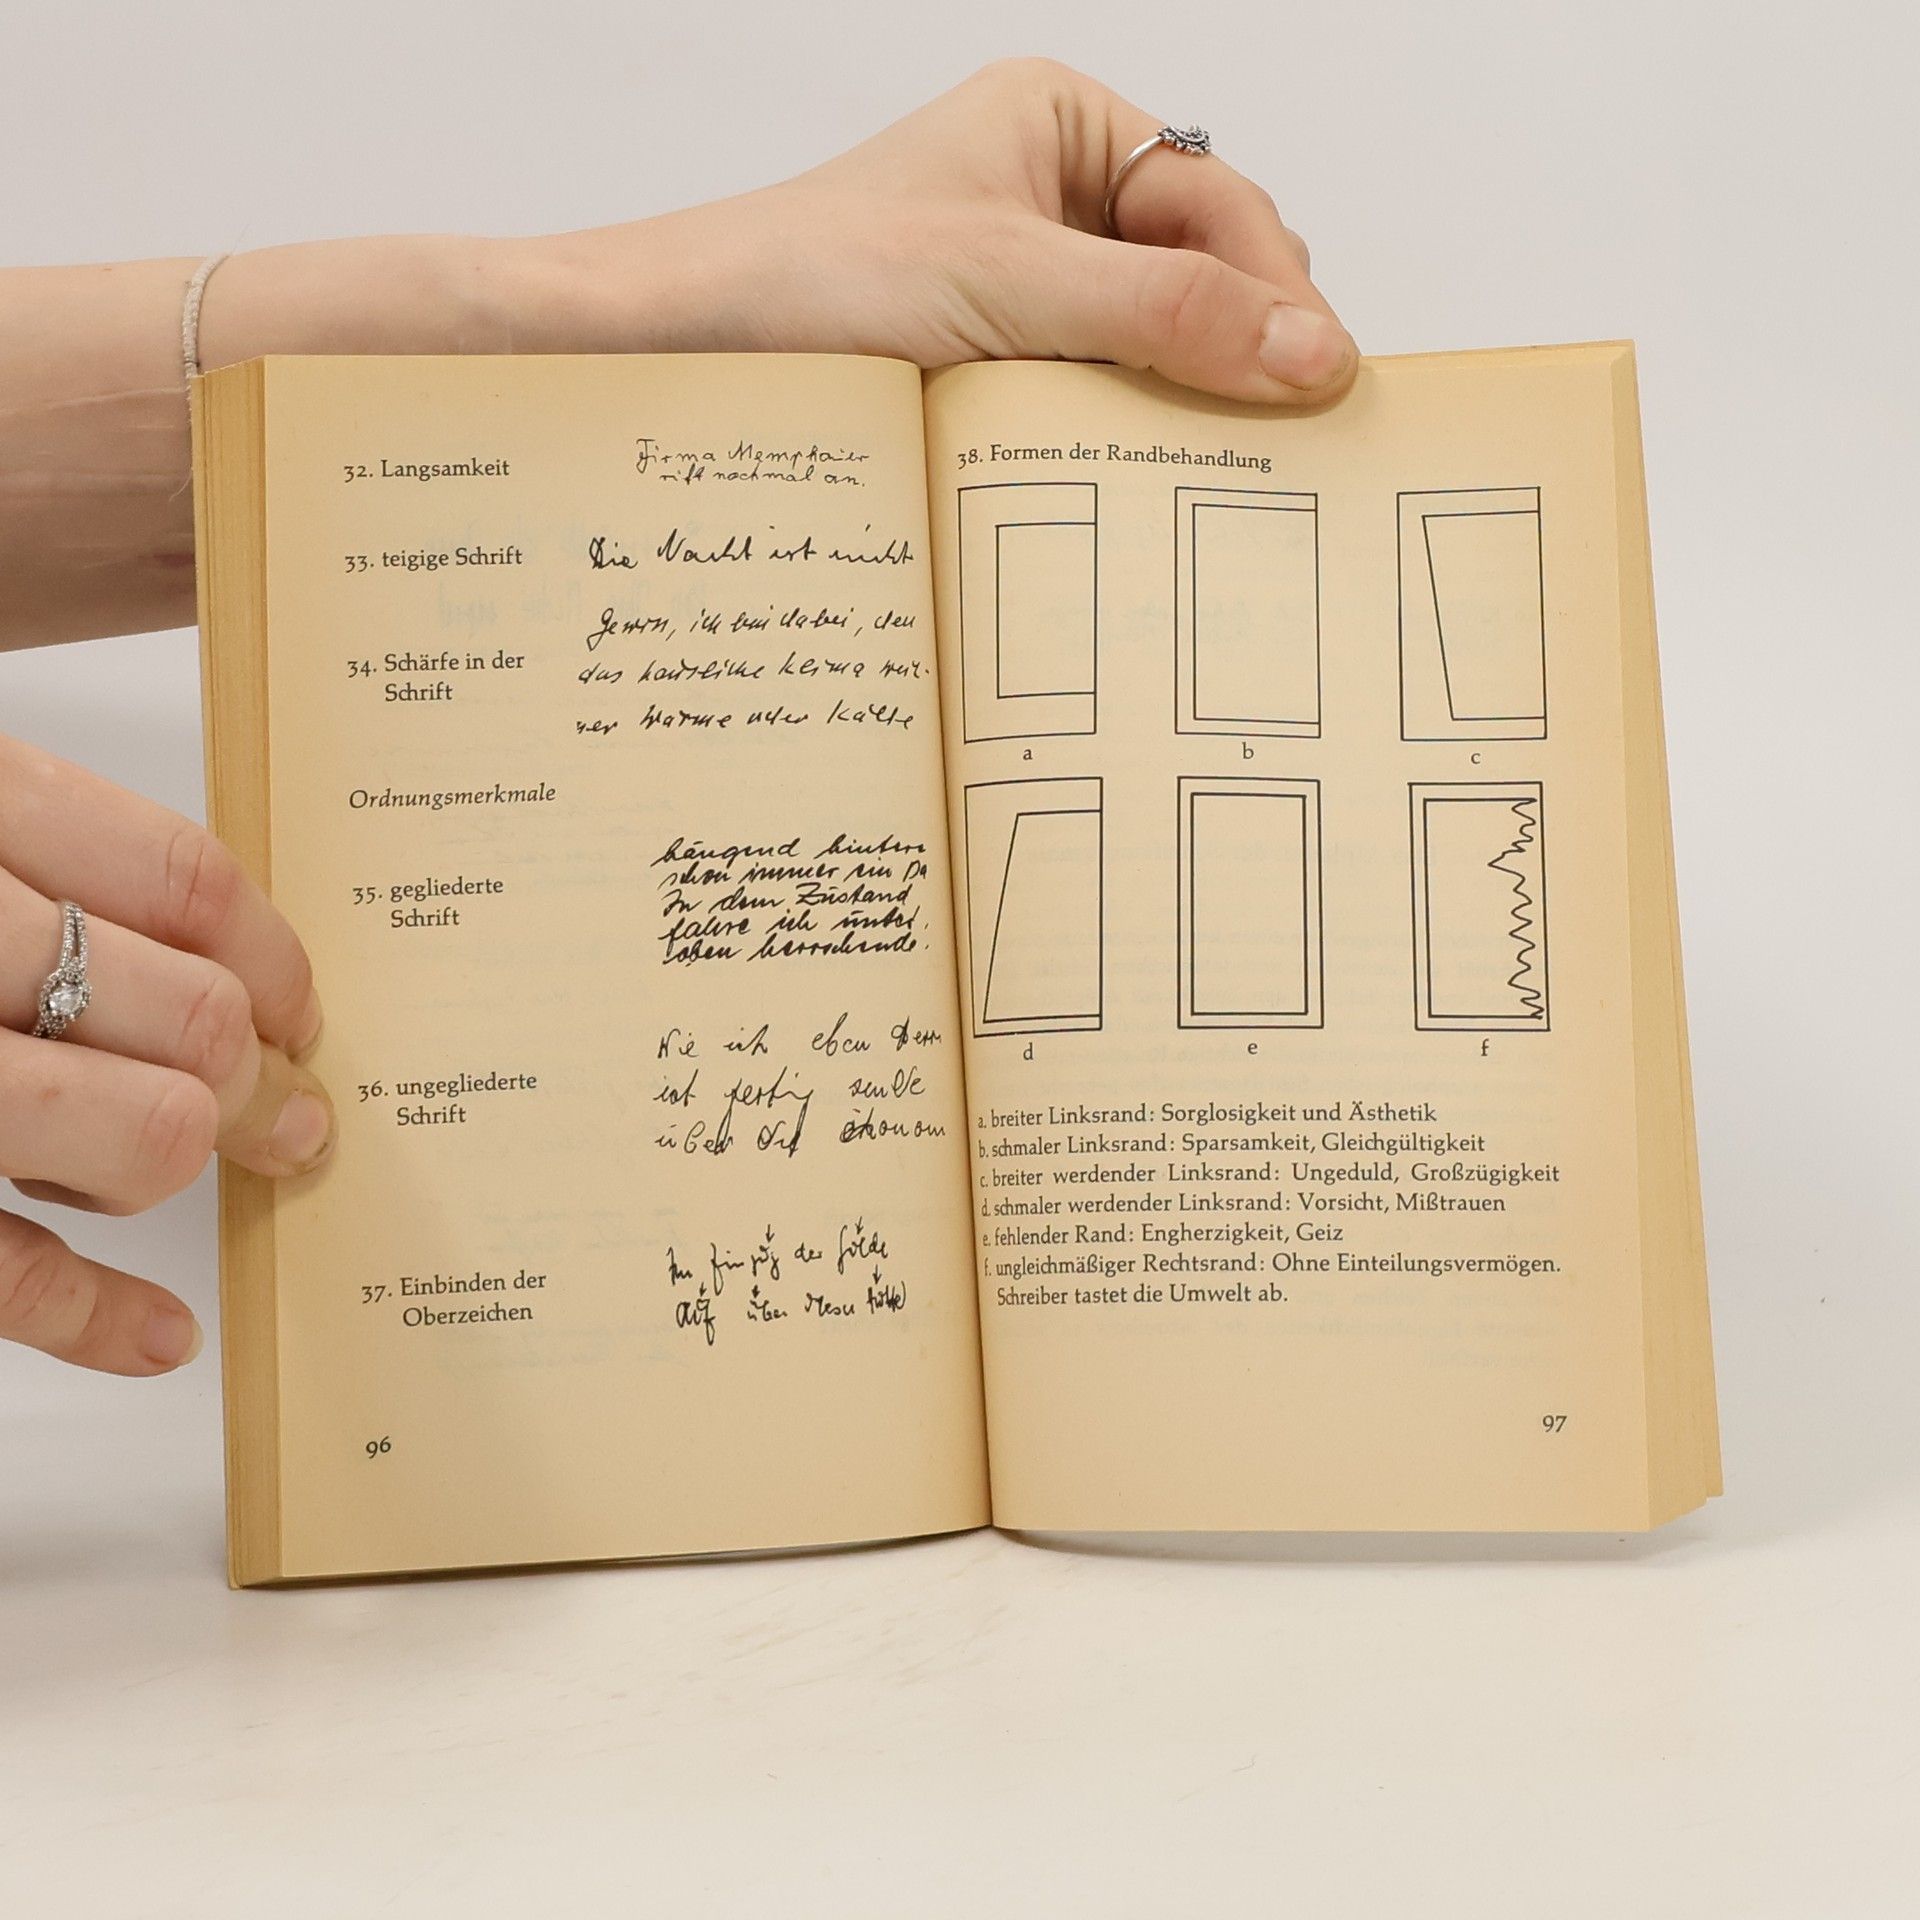 32. Langsamkeit
Firma
nochmal an.
33. teigige Schrift
Die Nacht ist nicht
34. Schärfe in der
Schrift
ich bin dabei, den
das häusliche Klima
Wärme oder Kälte
Ordnungsmerkmale
35. gegliederte
Schrift
hängend hintere
schon immer ein Da
In dem Zustand
fahre ich unter
oben herrschende.
36. ungegliederte
Schrift
Wie ich eben
ist fertig sende
über
37. Einbinden der
Oberzeichen
Im Einzug der
Auf über diesen
96
38. Formen der Randbehandlung
a
b
c
d
e
f
a. breiter Linksrand: Sorglosigkeit und Ästhetik
b. schmaler Linksrand: Sparsamkeit, Gleichgültigkeit
c. breiter werdender Linksrand: Ungeduld, Großzügigkeit
d. schmaler werdender Linksrand: Vorsicht, Mißtrauen
e. fehlender Rand: Engherzigkeit, Geiz
f. ungleichmäßiger Rechtsrand: Ohne Einteilungsvermögen.
Schreiber tastet die Umwelt ab.
97